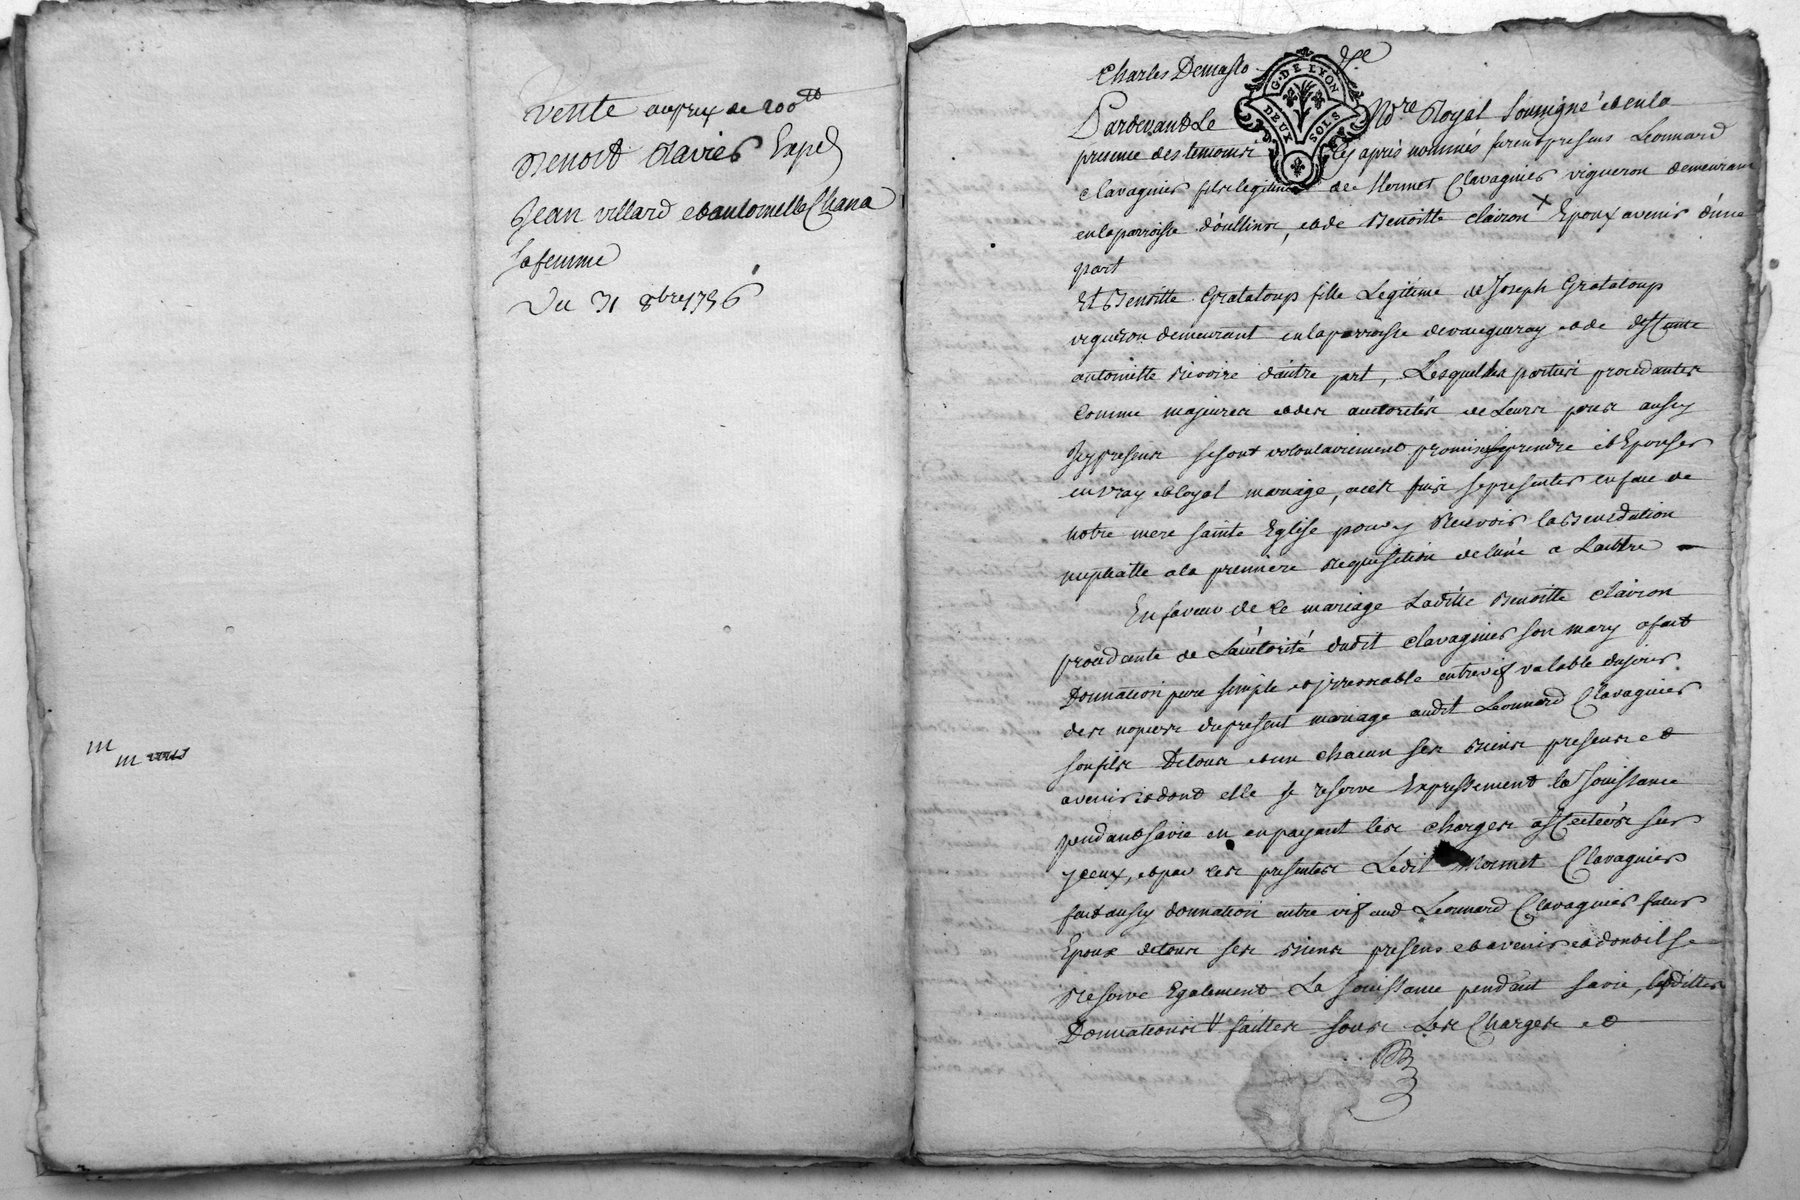 vente au prix de 200tt
Benoit Clavier Expéd
Jean villard et antoinette Chana
sa femme
Du 31 8bre 1756
m
m
Charles Demasso
G. DE LYON
DEUX SOLS
Pardevant Le Nore Royal soussigné et en la
presence des temoins cy après nommés furent presens Leonnard
Clavagnier fils legitime de Mermet Clavagnier vigneron demeurant
en la parroisse d'oullins, et de Benoitte clairon X Epoux avenir d'une
part
Et Benoitte Grataloup fille Legitime de Joseph Grataloup
vigneron demeurant en la parroisse de vaugneray et de deffunte
antoinette Rivoire d'autre part, Lesquelles parties procedantes
comme majeures et des autorités de Leurs peres aussy
icy presens se sont volontairement promis se prendre et Epouser
en vray et loyal mariage, a ces fins se presenter en face de
notre mere sainte Eglise pour y Recevoir la Benediction
nuptialle a la premiere Requisition de l'une a L'autre
En faveur de ce mariage Laditte Benoitte clairon
procedante de L'autorité dudit clavagnier son mary a fait
Donnation pure simple et irrevocable entre vifs valable du jour
des nopces du present mariage audit Leonnard Clavagnier
son fils De tous et un chacun ses Biens presens et
avenir et dont elle se reserve Expressement la Jouissance
pendant sa vie en en payant les charges affectées sur
yceux, et par ces presentes Ledit Mermet Clavagnier
fait aussy donnation entre vifs aud Leonnard Clavagnier futur
Epoux de tous ses Biens presens et avenir et dont il se
Reserve Egalement La Jouissance pendant sa vie, lesdittes
Donnations # faittes sous Les Charges et